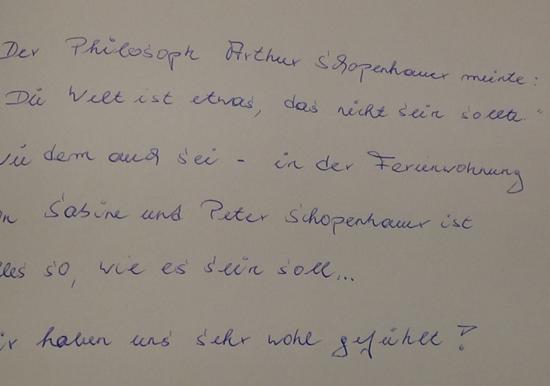 Der Philosoph Arthur Schopenhauer meinte:
Die Welt ist etwas, das nicht sein sollte."
wie dem auch sei - in der Ferienwohnung
on Sabine und Peter Schopenhauer ist
lles so, wie es sein soll...
ir haben uns sehr wohl gefühlt!